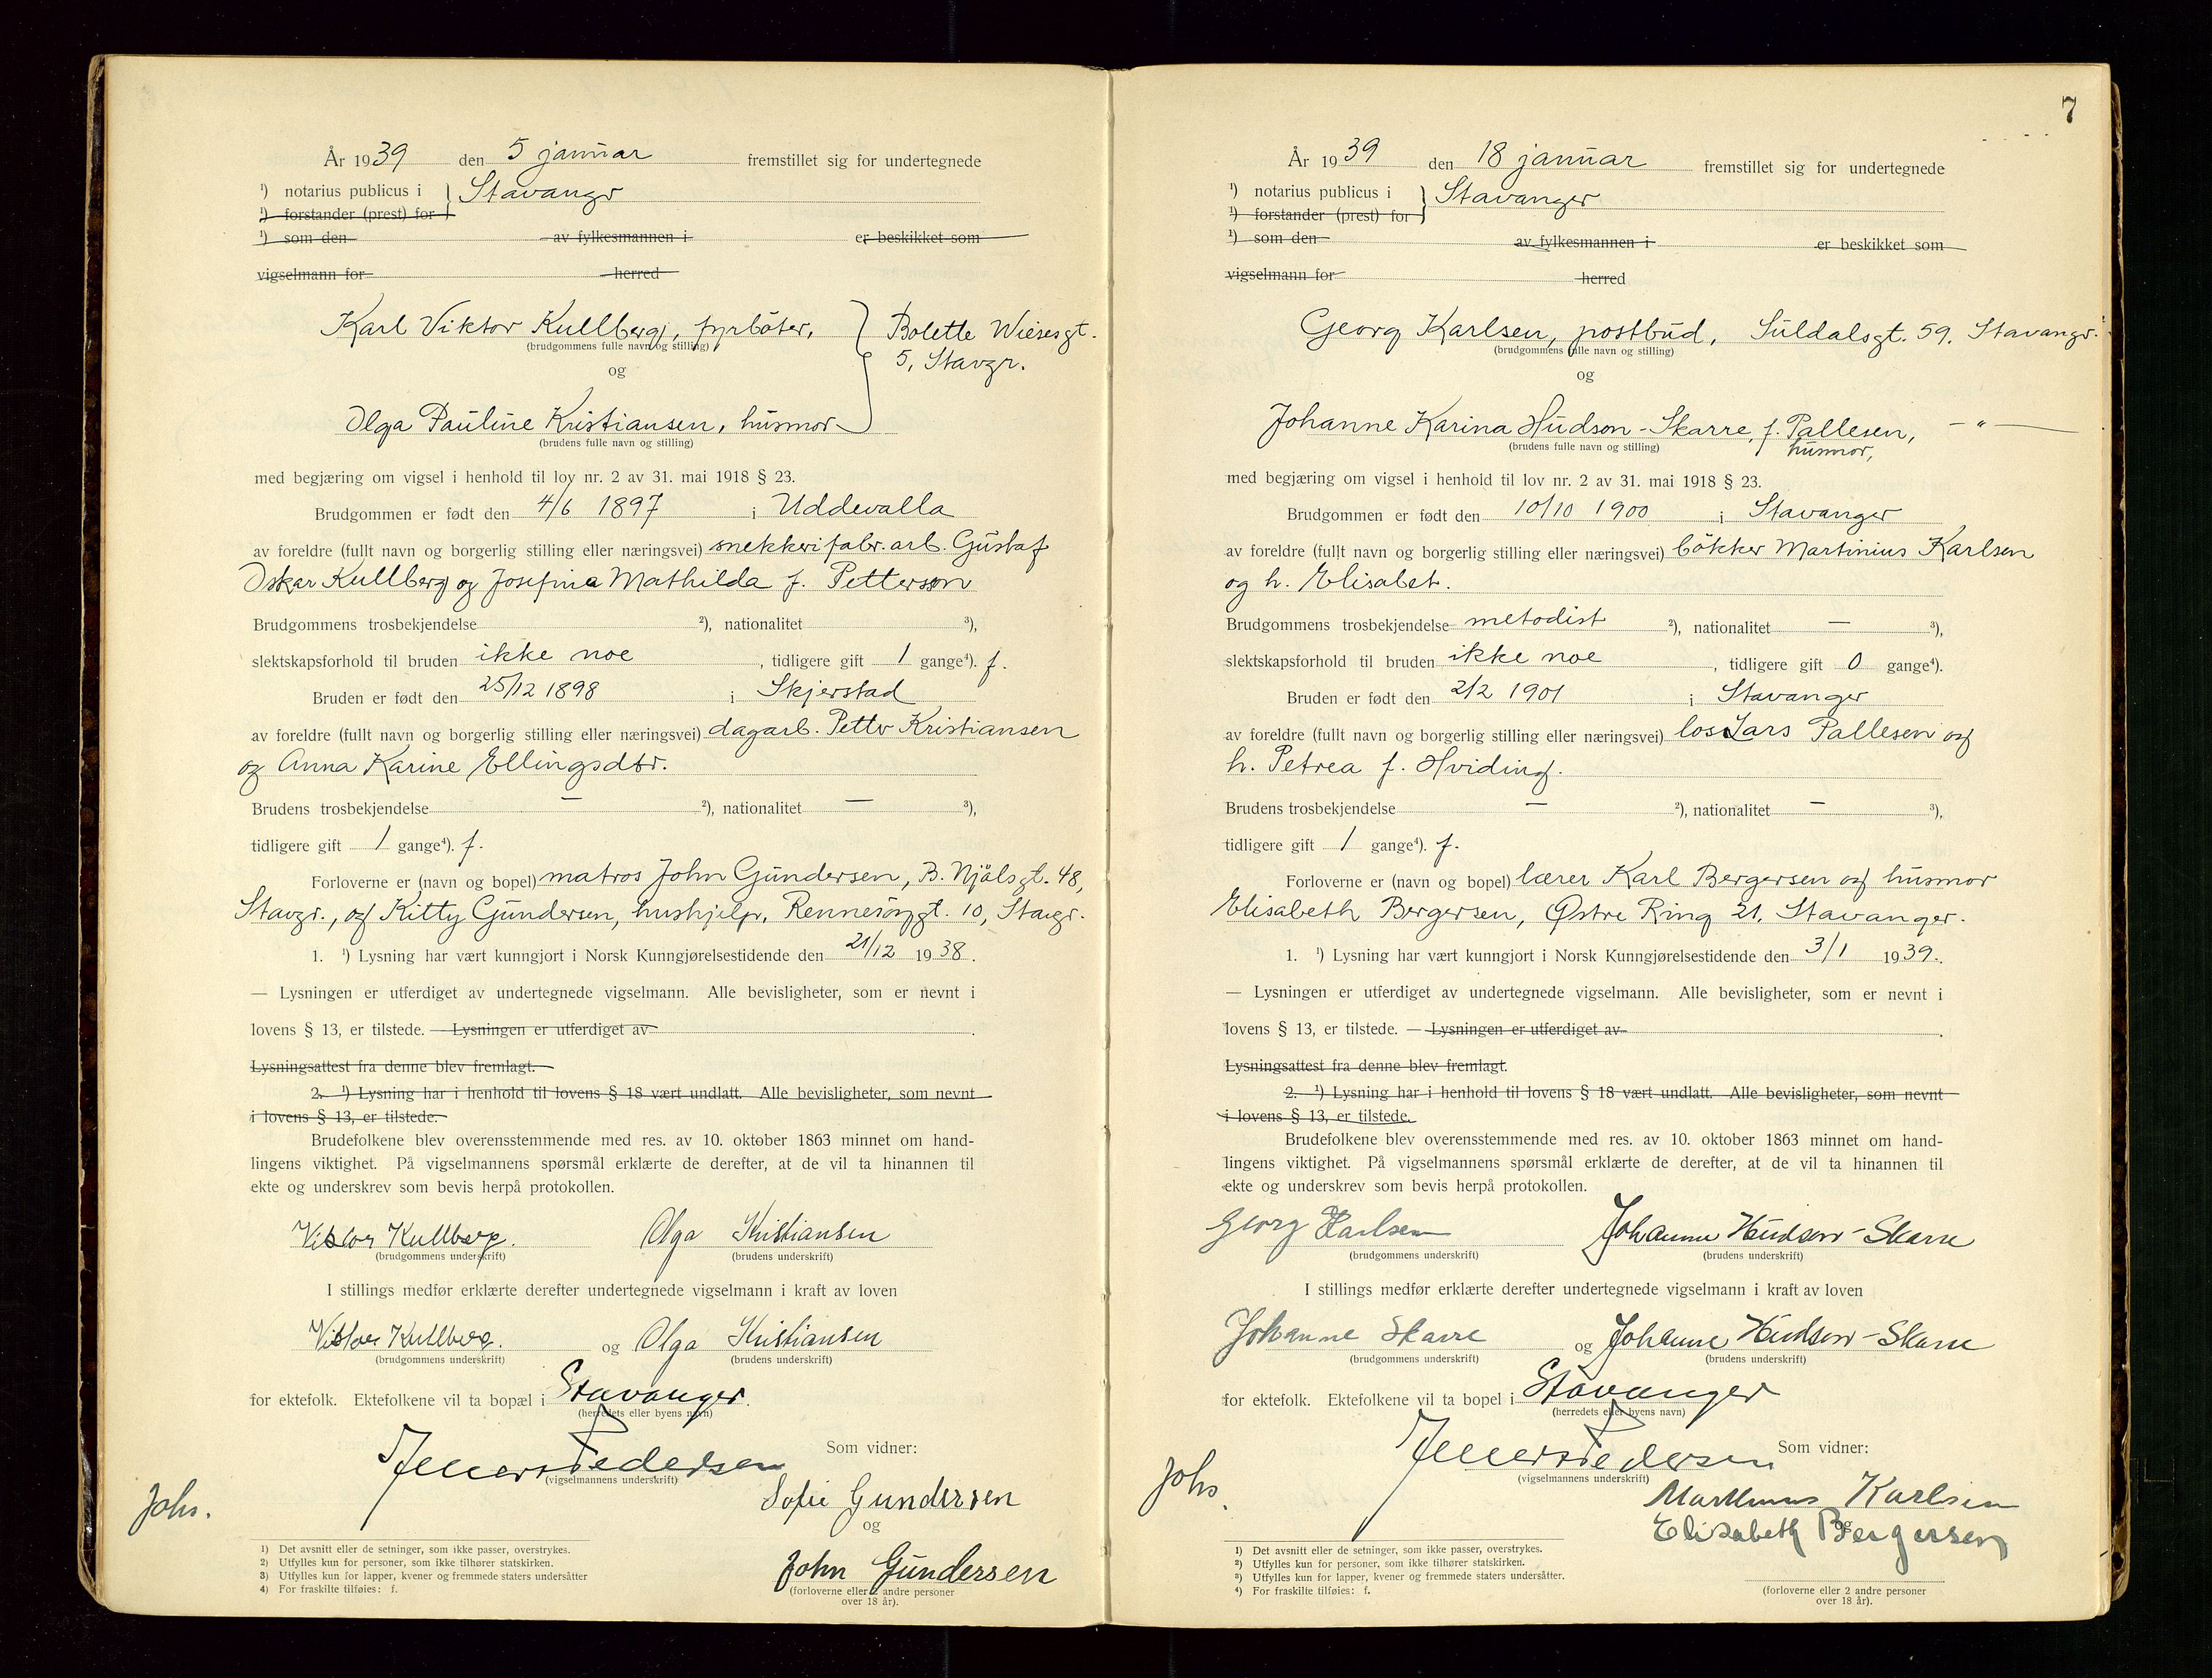 År 1939 den 5 januar fremstillet sig for undertegnede
¹) notarius publicus i } Stavangr
¹) forstander (prest) for
¹) som den av fylkesmannen i er beskikket som
vigselmann for herred
Karl Viktor Kullberg, fyrböter, } Bolette Wiesesgt.
(brudgommens fulle navn og stilling)
5, Stavgr.
og
Olga Pauline Kristiansen, husmor
(brudens fulle navn og stilling)
med begjæring om vigsel i henhold til lov nr. 2 av 31. mai 1918 § 23.
Brudgommen er født den 4/6 1897 i Uddevalla
av foreldre (fullt navn og borgerlig stilling eller næringsvei) snekkerifabr. arb. Gustaf
Oskar Kullberg og Josefina Mathilda f. Petterson
Brudgommens trosbekjendelse ²), nationalitet ³),
slektskapsforhold til bruden ikke noe, tidligere gift 1 gange⁴). f.
Bruden er født den 25/12 1898 i Skjerstad
av foreldre (fullt navn og borgerlig stilling eller næringsvei) dagarb. Petter Kristiansen
og Anna Karine Ellingsdtr.
Brudens trosbekjendelse — ²), nationalitet — ³),
tidligere gift 1 gange⁴). f.
Forloverne er (navn og bopel) matros John Gundersen, B. Njålsgt. 48,
Stavgr., og Kitty Gundersen, hushjelp, Rennesöygt. 10, Stavgr.
1. ¹) Lysning har vært kunngjort i Norsk Kunngjørelsestidende den 21/12 1938.
— Lysningen er utferdiget av undertegnede vigselmann. Alle bevisligheter, som er nevnt i
lovens § 13, er tilstede. — Lysningen er utferdiget av .
Lysningsattest fra denne blev fremlagt.
2. ¹) Lysning har i henhold til lovens § 18 vært undlatt. Alle bevisligheter, som nevnt
i lovens § 13, er tilstede.
Brudefolkene blev overensstemmende med res. av 10. oktober 1863 minnet om hand-
lingens viktighet. På vigselmannens spørsmål erklærte de derefter, at de vil ta hinannen til
ekte og underskrev som bevis herpå protokollen.
Viktor Kullberg. Olga Kristiansen
(brudgommens underskrift) (brudens underskrift)
I stillings medfør erklærte derefter undertegnede vigselmann i kraft av loven
Viktor Kullberg. og Olga Kristiansen
(brudgommens underskrift) (brudens underskrift)
for ektefolk. Ektefolkene vil ta bopæl i Stavanger.
(herredets eller byens navn)
Som vidner:
(vigselmannens underskrift)
Sofie Gundersen
Johs.
og
John Gundersen
(forloverne eller 2 andre personer
over 18 år).
1) Det avsnitt eller de setninger, som ikke passer, overstrykes.
2) Utfylles kun for personer, som ikke tilhører statskirken.
3) Utfylles kun for lapper, kvener og fremmede staters undersåtter
4) For fraskilte tilføies: f.
7
År 1939 den 18 januar fremstillet sig for undertegnede
¹) notarius publicus i } Stavanger
¹) forstander (prest) for
¹) som den av fylkesmannen i er beskikket som
vigselmann for herred
Georg Karlsen, postbud, Suldalsgt. 59, Stavangr.
(brudgommens fulle navn og stilling)
og
Johanne Karina Hudson-Skarre, f. Pallesen, — " —
(brudens fulle navn og stilling) husmor,
med begjæring om vigsel i henhold til lov nr. 2 av 31. mai 1918 § 23.
Brudgommen er født den 10/10 1900 i Stavanger
av foreldre (fullt navn og borgerlig stilling eller næringsvei) bökker Martinius Karlsen
og h. Elisabet.
Brudgommens trosbekjendelse metodist ²), nationalitet — ³),
slektskapsforhold til bruden ikke noe, tidligere gift 0 gange⁴).
Bruden er født den 2/2 1901 i Stavanger
av foreldre (fullt navn og borgerlig stilling eller næringsvei) los Lars Pallesen og
h. Petrea f. Hviding.
Brudens trosbekjendelse — ²), nationalitet — ³),
tidligere gift 1 gange⁴). f.
Forloverne er (navn og bopel) lærer Karl Bergersen og husmor
Elisabeth Bergersen, Østre Ring 21, Stavanger.
1. ¹) Lysning har vært kunngjort i Norsk Kunngjørelsestidende den 3/1 1939.
— Lysningen er utferdiget av undertegnede vigselmann. Alle bevisligheter, som er nevnt i
lovens § 13, er tilstede. — Lysningen er utferdiget av .
Lysningsattest fra denne blev fremlagt.
2. ¹) Lysning har i henhold til lovens § 18 vært undlatt. Alle bevisligheter, som nevnt
i lovens § 13, er tilstede.
Brudefolkene blev overensstemmende med res. av 10. oktober 1863 minnet om hand-
lingens viktighet. På vigselmannens spørsmål erklærte de derefter, at de vil ta hinannen til
ekte og underskrev som bevis herpå protokollen.
Georg Karlsen Johanne Hudson-Skarre
(brudgommens underskrift) (brudens underskrift)
I stillings medfør erklærte derefter undertegnede vigselmann i kraft av loven
Johanne Skarre og Johanne Hudson-Skarre
(brudgommens underskrift) (brudens underskrift)
for ektefolk. Ektefolkene vil ta bopel i Stavanger
(herredets eller byens navn)
Som vidner:
(vigselmannens underskrift)
Johs.
Martinius Karlsen
og
Elisabeth Bergersen
(forloverne eller 2 andre personer
over 18 år).
1) Det avsnitt eller de setninger, som ikke passer, overstrykes.
2) Utfylles kun for personer, som ikke tilhører statskirken.
3) Utfylles kun for lapper, kvener og fremmede staters undersåtter.
4) For fraskilte tilføies: f.